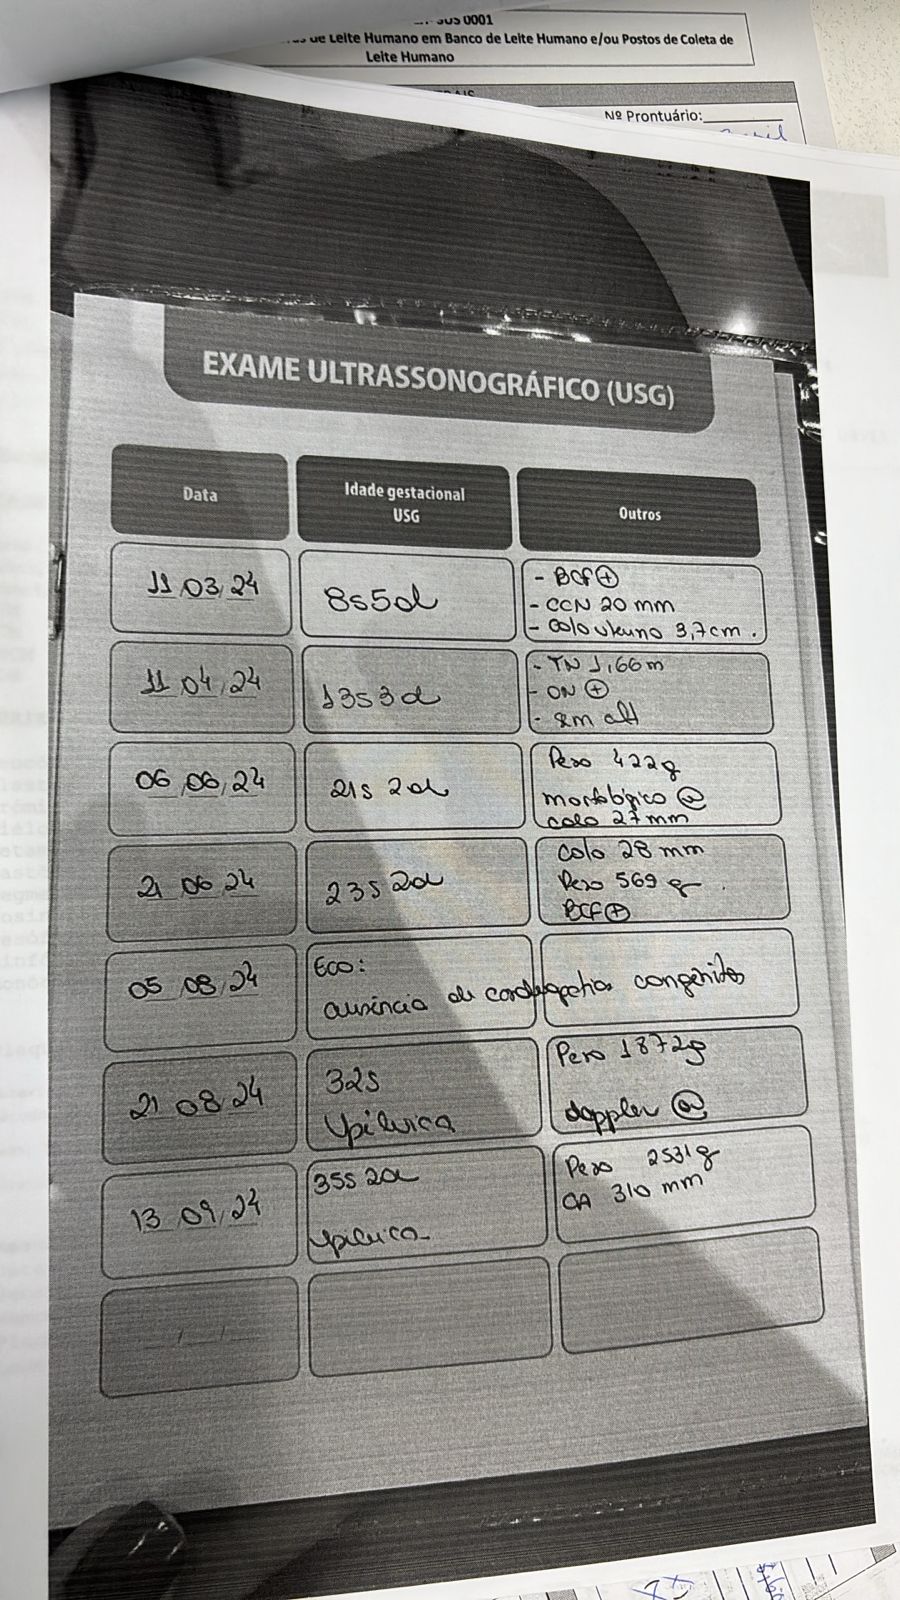 SUS 0001
de Leite Humano em Banco de Leite Humano e/ou Postos de Coleta de
Leite Humano
Nº Prontuário:
EXAME ULTRASSONOGRÁFICO (USG)
Data
Idade gestacional
USG
Outros
11 03 24
8s5d
- BCF ⊕
- CCN 20 mm
- Colo uterino 3,7cm.
11 04 24
13s3d
- TN 1,66m
- ON ⊕
- sem alt
06 06 24
21s 2d
Peso 422g
morfológico @
colo 27mm
21 06 24
23s 2d
Colo 28 mm
Peso 569 g
BCF ⊕
05 08 24
Eco:
ausência de cardiopatias congênitas
21 08 24
32s
↓pélvica
Peso 1872g
doppler @
13 09 24
35s 2d
↓pélvica
Peso 2531g
CA 310 mm